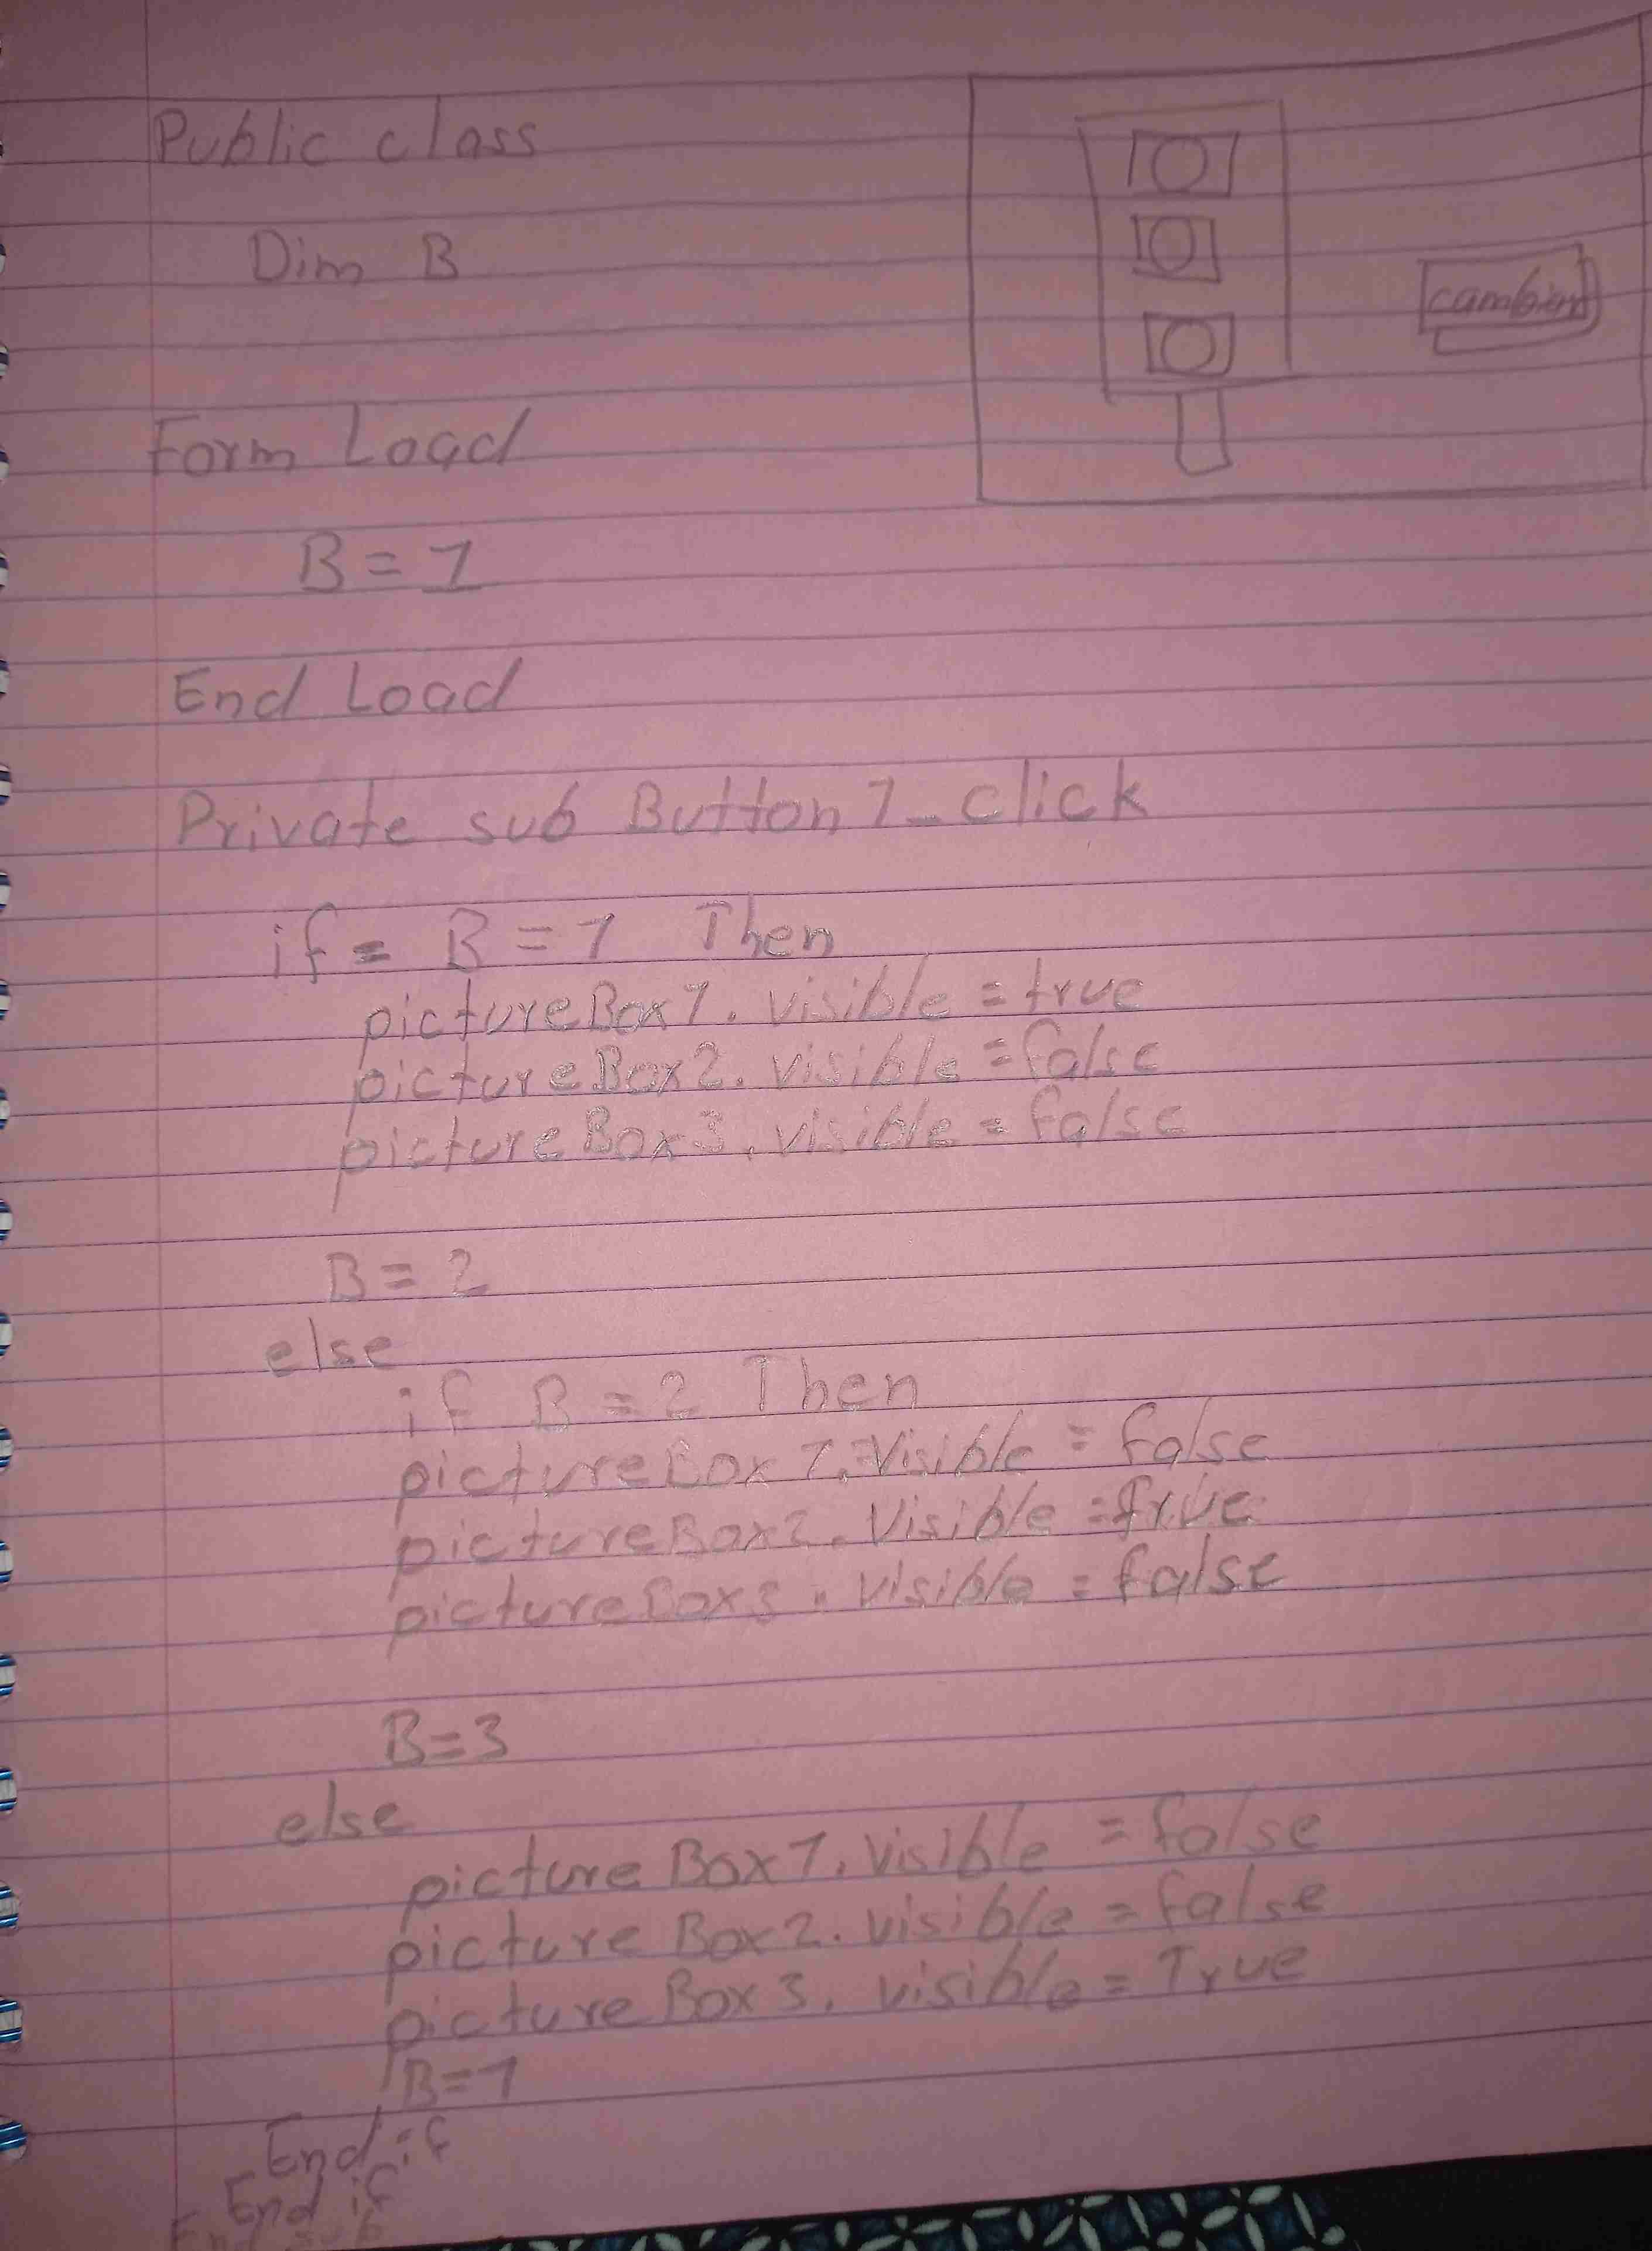 Public class
Dim B
cambiar
Form Load
B = 1
End Load
Private sub Button 1_click
if = B = 1 Then
pictureBox1. visible = true
pictureBox2. visible = false
pictureBox3. visible = false
B = 2
else
if B = 2 Then
pictureBox1. Visible = false
pictureBox2. Visible = true
pictureBox3. visible = false
B=3
else
picture Box1. visible = false
picture Box2. visible = false
picture Box3. visible = True
B=1
End if
End if
End sub